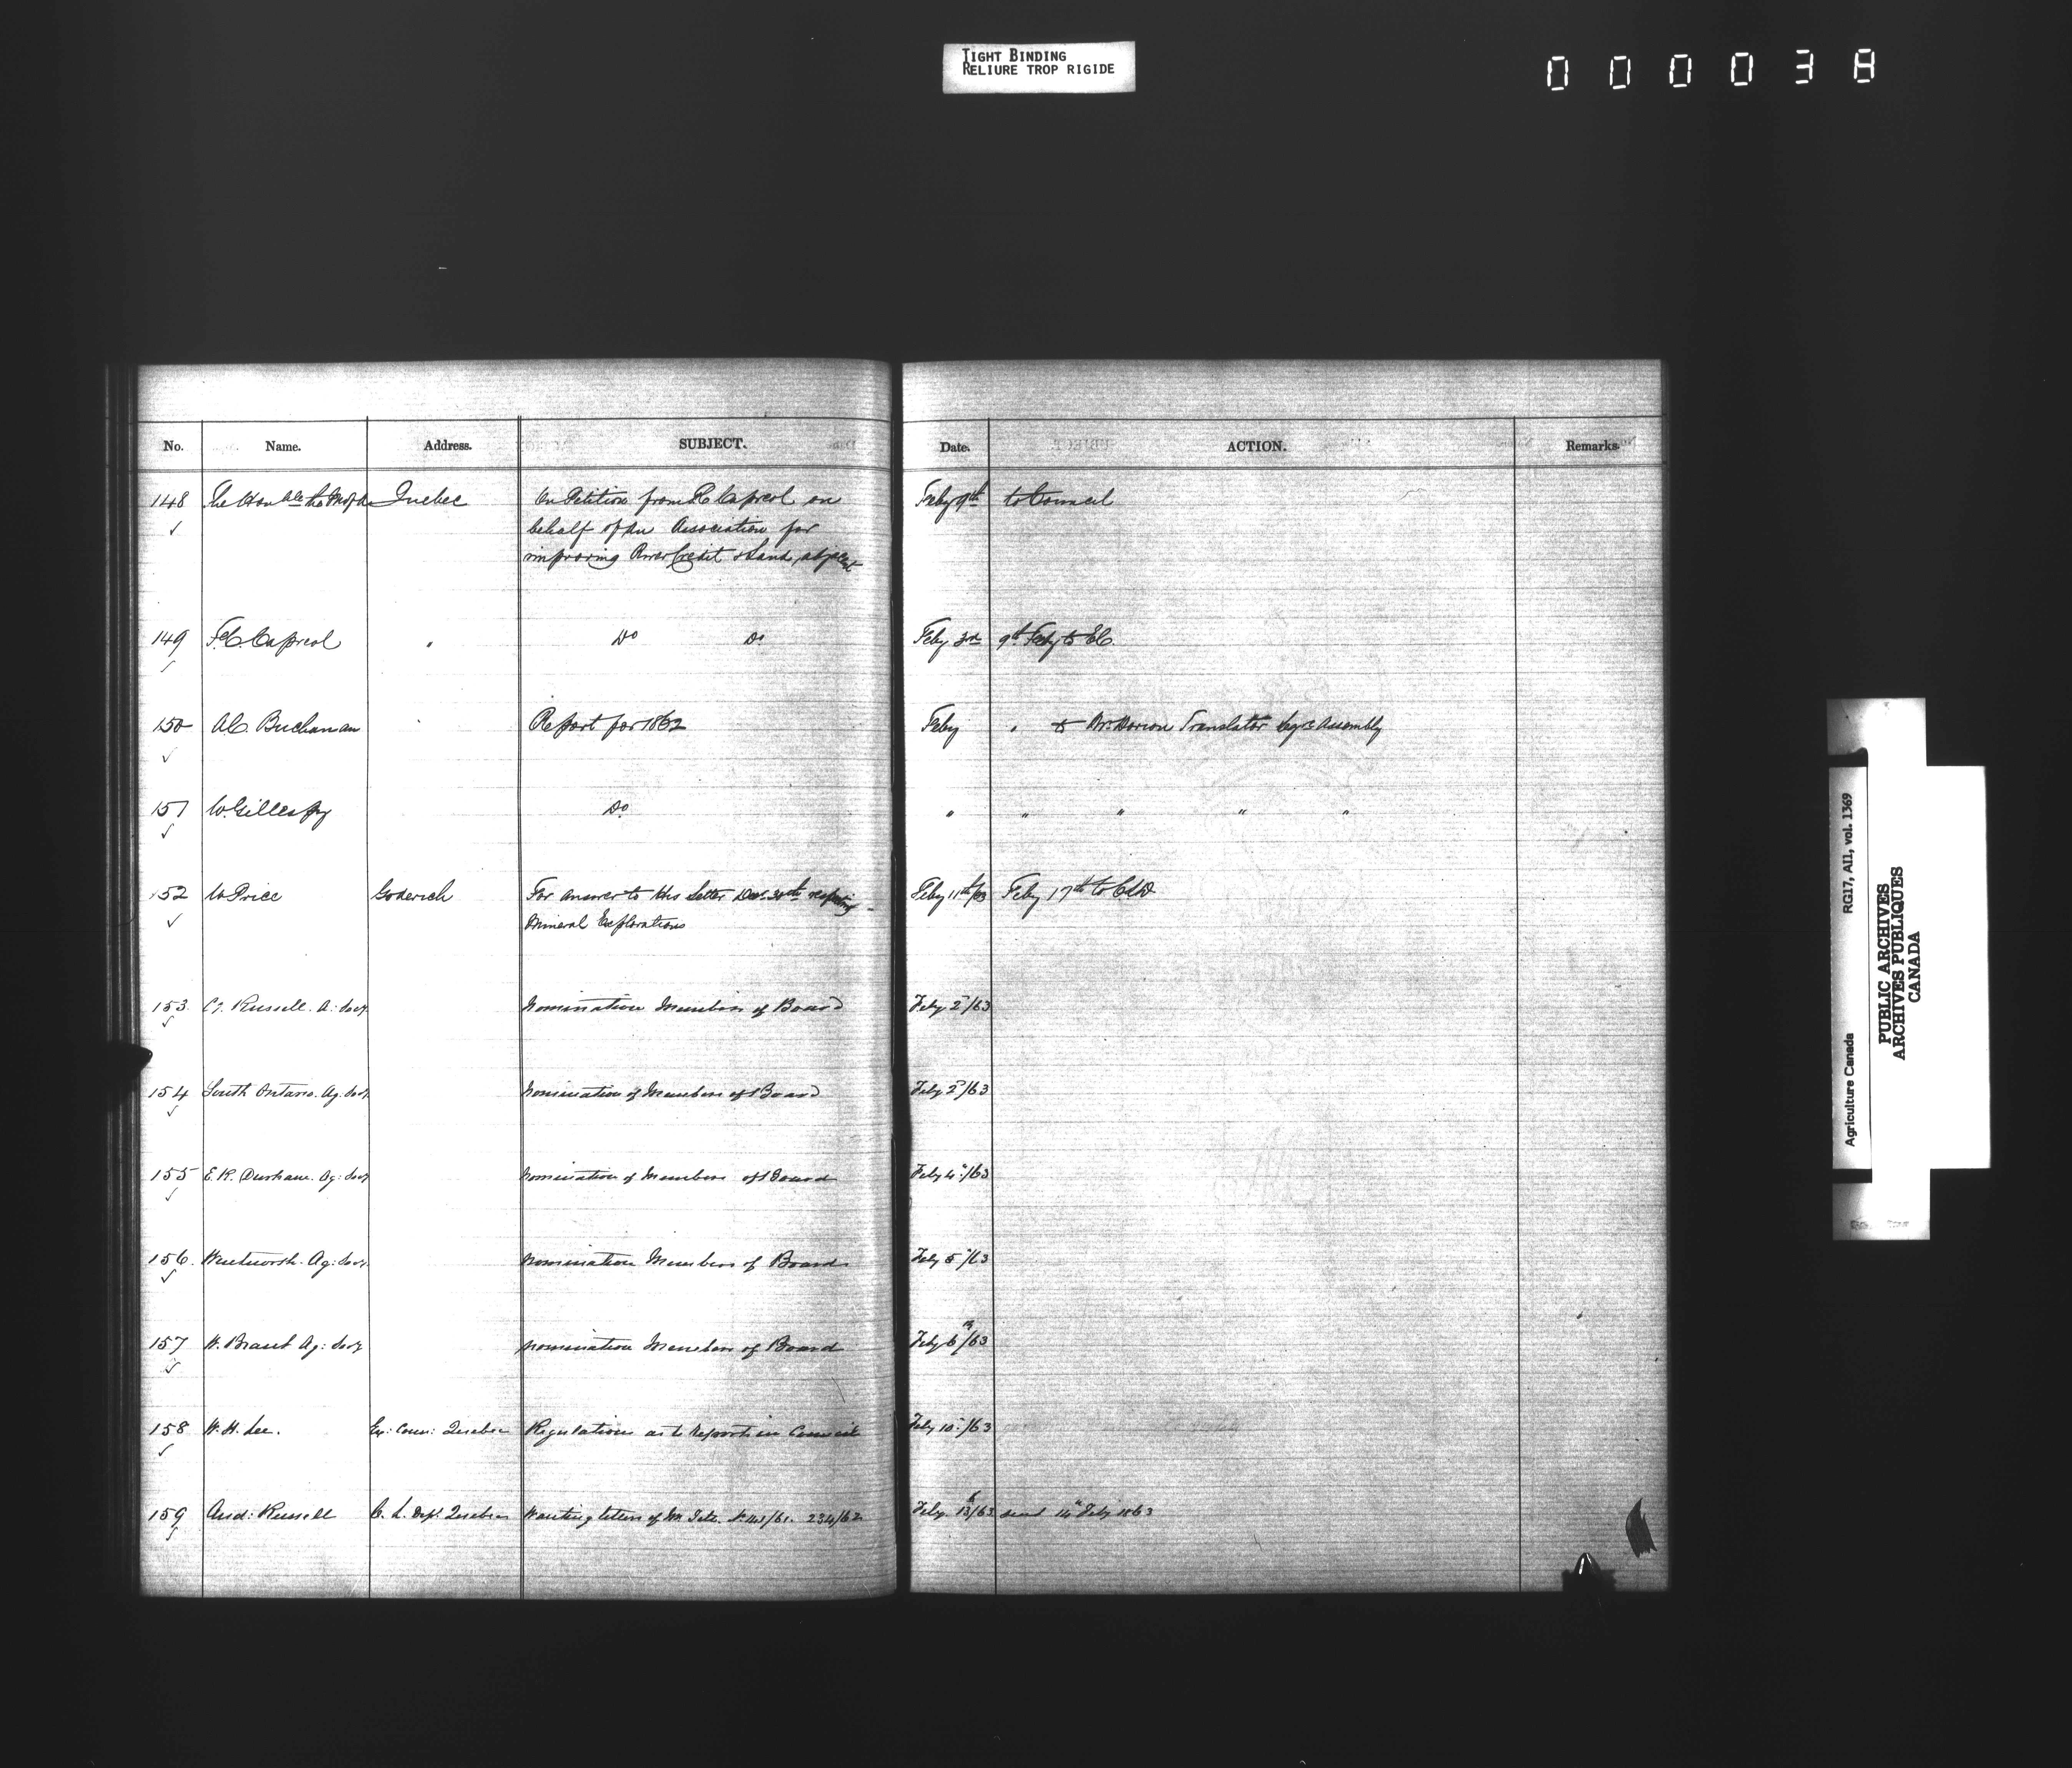 TIGHT BINDING
RELIURE TROP RIGIDE
000038
No. Name. Address. SUBJECT. Date. ACTION. Remarks.
148 The Honble the M of A Quebec On Petition from F C Capreol on Feby 9th to Council
behalf of an Association for
improving River Credit & Land adjacent
149 F.C. Capreol " Do Do Feby 3rd 9th Feby to E C.
150 A.C. Buchanan Report for 1862 Feby " to Mr Dorion Translator Legve Assembly
151 W. Gillespy Do " " " " "
152 W Price Goderich For answer to his letter respecting Feby 11th/63 Feby 17th to C L D
Mineral Explorations
153 Russell. A: Socy. Nomination Members of Board Feby 2/63
154 South Ontario. Ag. Socy. Nomination of Members of Board Feby 2/63
155 E. R. Durham. Ag: Socy Nomination of Members of Board Feby 4/63
156. Wentworth. Ag: Socy. Nomination Members of Board Feby 5/63
157 W. Brant Ag: Socy. Nomination Members of Board Feby 6th/63
158 W. H. Lee. Ex: Coun: Quebec Regulations as to Reports in Council Feby 10/63
159 And: Russell C. L. Dept. Quebec Wanting letters of Mr 234/62 Feby. 13/63 send 14th Feby 1863
Agriculture Canada RG17, AII, vol. 1369
PUBLIC ARCHIVES
ARCHIVES PUBLIQUES
CANADA